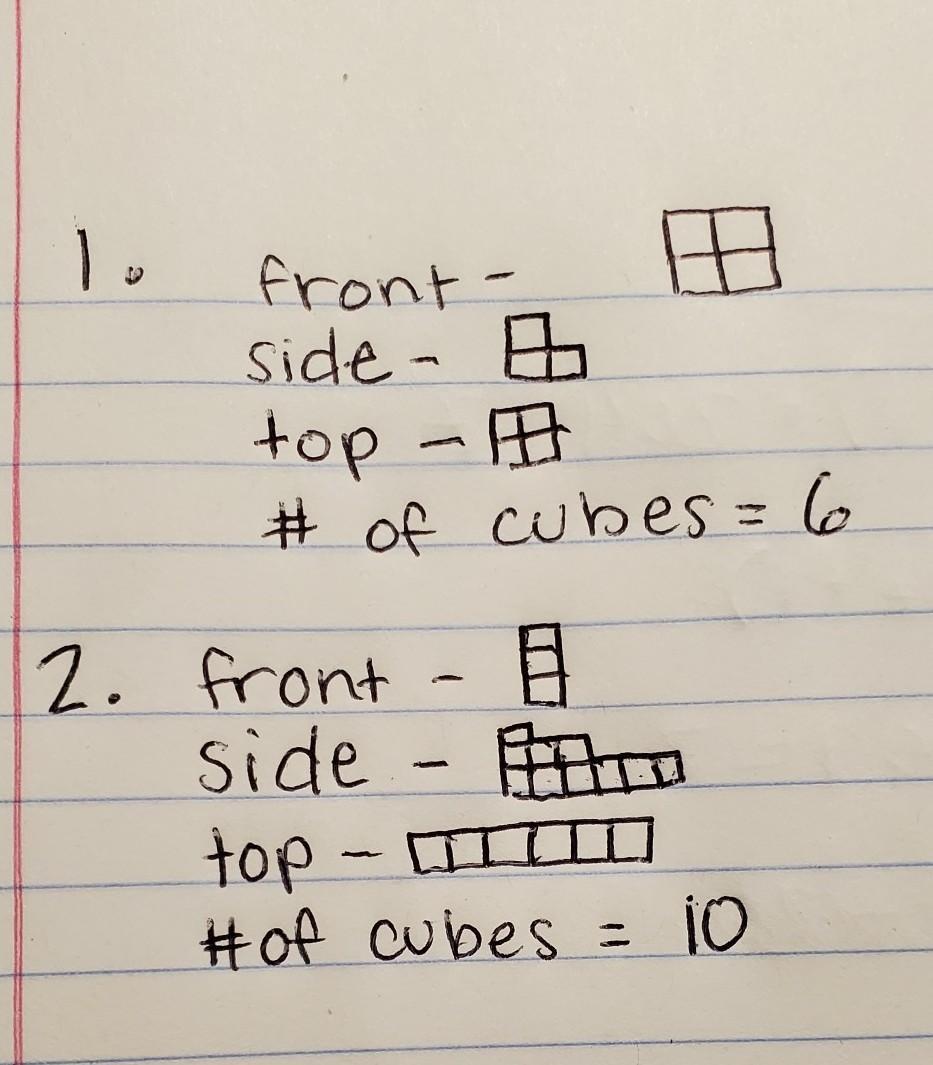 1. front -
side -
top -
# of cubes = 6
2. front -
side -
top -
# of cubes = 10